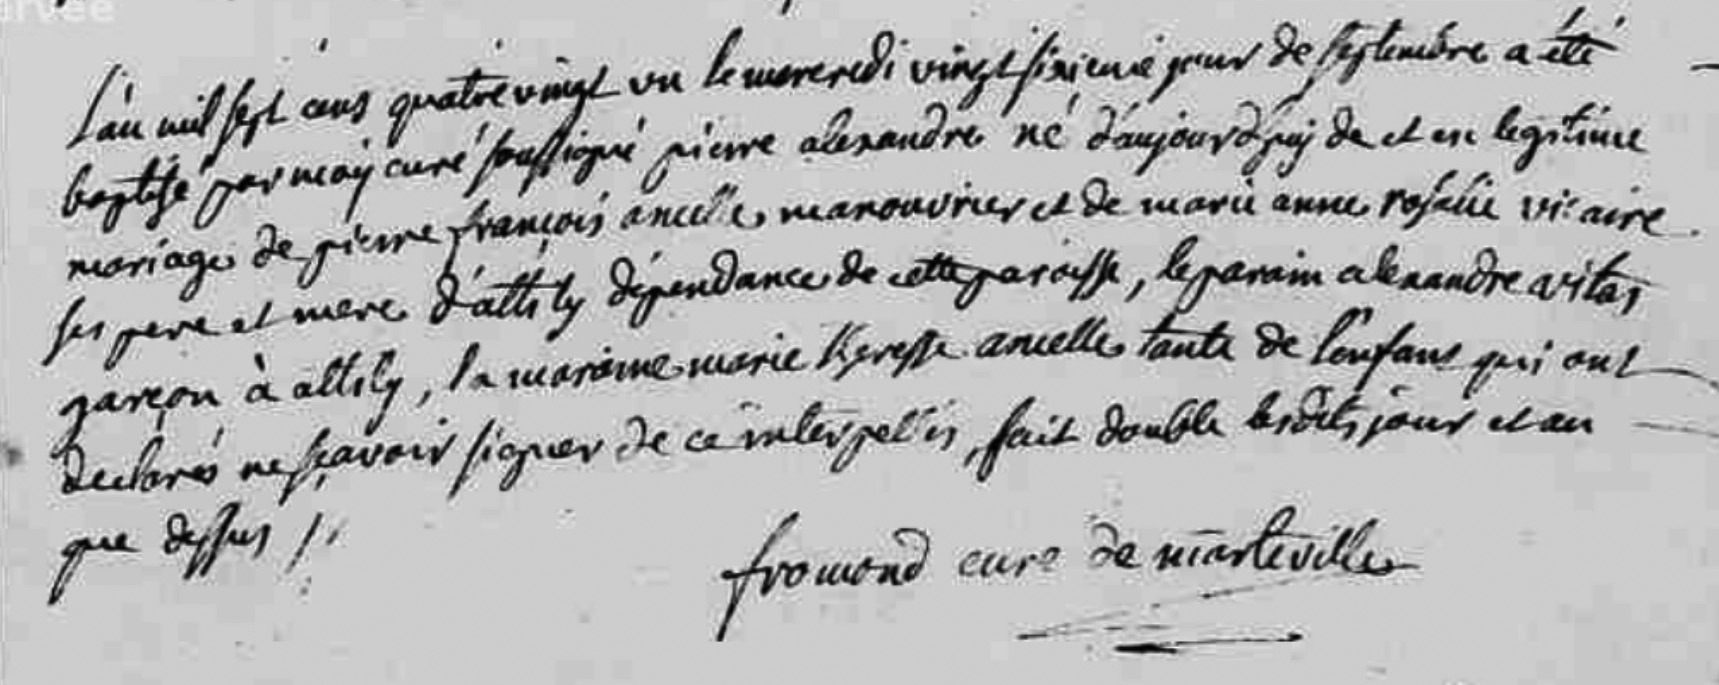 rvée
L'an mil sept cens quatrevingt un le mercredi vingt sixieme jour de septembre a été
baptisé par moÿ curé soussigné pierre alexandre né d'aujourd'huÿ de et en legitime
mariage de pierre françois ancelle manouvrier et de marie anne rosalie vicaire
ses pere et mere d'attily dépendance de cette paroisse, le parain alexandre
garçon à attily, la maraine marie ancelle tante de l'enfant qui ont
declarés ne sçavoir signer de ce interpellés, fait double lesdits jour et an
que dessus //
fromond curé de marteville